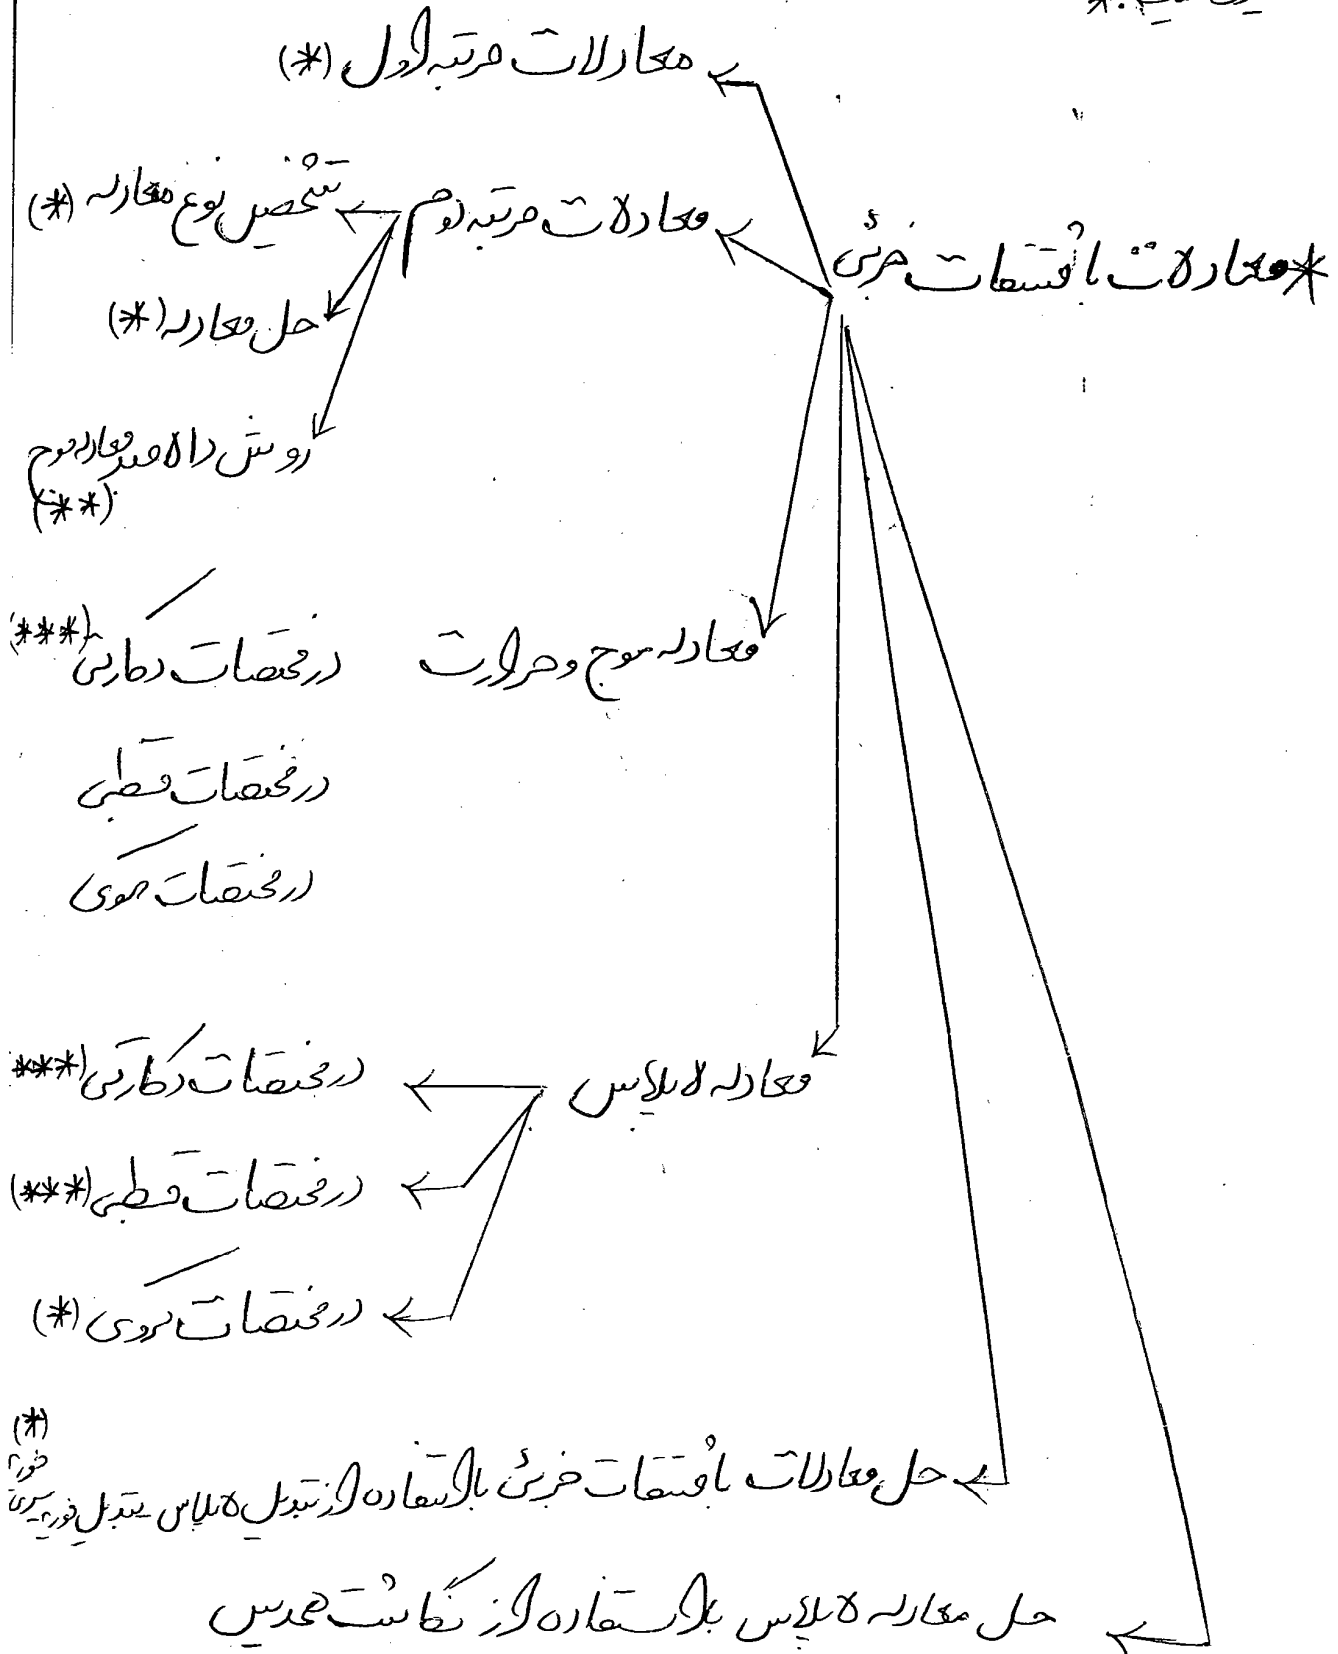 معادلات مرتبه اول (*)
* معادلات با مشتقات جزئی
معادلات مرتبه دوم
تشخیص نوع معادله (*)
حل معادله (*)
روش دالامبر معادله موج
(**)
معادله موج و حرارت
در مختصات دکارتی (***)
در مختصات قطبی
در مختصات کروی
معادله لاپلاس
در مختصات دکارتی (***
در مختصات قطبی (***)
در مختصات کروی (*)
حل معادلات با مشتقات جزئی با استفاده از تبدیل لاپلاس - تبدیل فوریه سری فوریه (*)
حل معادله لاپلاس با استفاده از نگاشت همدیس